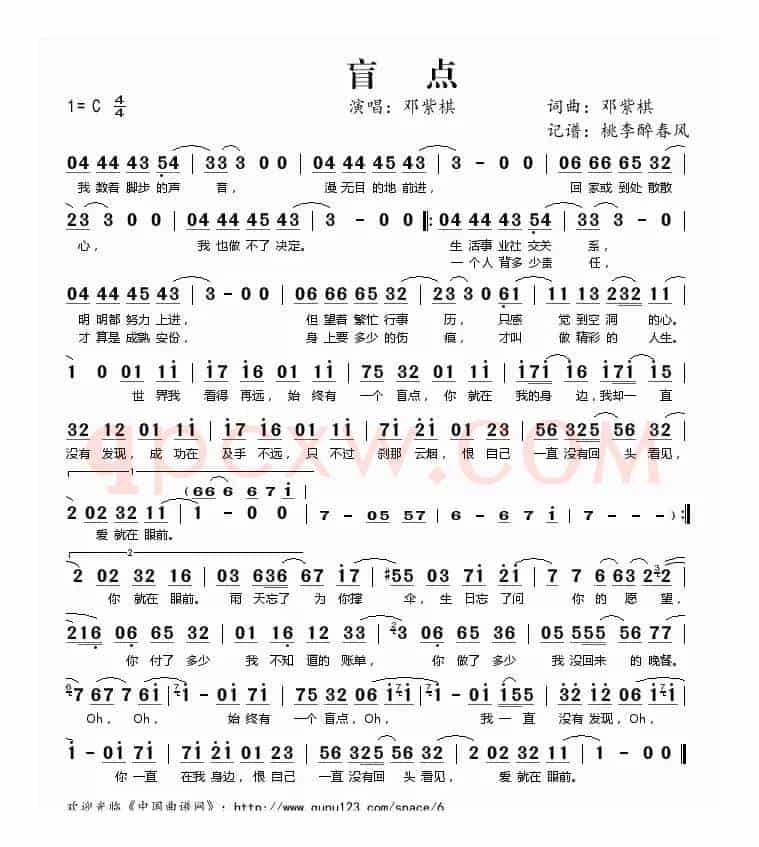 盲 点
1= C 4/4 演唱：邓紫棋 词曲：邓紫棋
记谱：桃李醉春风
04 44 43 54 | 33 3 0 0 | 04 44 45 43 | 3 - 0 0 | 06 66 65 32 |
我 数着 脚步 的声 音， 漫 无目 的地 前进， 回 家或 到处 散散
23 3 0 0 | 04 44 45 43 | 3 - 0 0 ‖: 04 44 43 54 | 33 3 - 0 |
心， 我 也做 不了 决定。 生 活事 业社 交关 系，
一 个人 背多 少责 任，
04 44 45 43 | 3 - 0 0 | 06 66 65 32 | 23 3 0 61 | 11 13 232 11 |
明 明都 努力 上进， 但 望着 繁忙 行事 历， 只感 觉 到空 洞 的心。
才 算是 成熟 安份， 身 上要 多少 的伤 痕， 才叫 做 精彩 的 人生。
1 0 01 11 | 17 16 01 11 | 75 32 01 11 | 16 171 16 171 |
世 界我 看得 再远， 始 终有 一个 盲点， 你 就在 我的 身 边，我却 一直
32 12 01 11 | 17 16 01 11 | 71 21 01 23 | 56 325 56 32 |
没有 发现， 成 功在 及手 不远， 只 不过 刹那 云烟， 恨 自己 一直 没有回 头 看见，
1
(66 6 67 1
2 02 32 11 | 1 - 0 0 | 7 - 05 57 | 6 - 6 7 1 | 7 - - -) :‖
爱 就在 眼前。
2
2 02 32 16 | 03 636 67 17 | #55 03 71 21 | 7 7 63 232 |
你 就在 眼前。 雨 天忘了 为 你撑 伞， 生 日忘 了问 你 的 愿 望，
216 06 65 32 | 01 16 12 33 | 23 06 65 32 | 05 555 56 77 |
你 付了 多少 我 不知 道的 账单， 你 做了 多少 我 没回来 的 晚餐。
67 67 7 61 | 71 - 01 71 | 75 32 06 71 | 71 - 01 155 | 32 12 06 11 |
Oh, Oh, 始 终有 一个 盲点，Oh, 我 一直 没有 发现，Oh,
1 - 01 71 | 17 21 01 23 | 56 325 56 32 | 2 02 32 11 | 1 - 0 0 ‖
你 一直 在我 身边， 恨 自己 一直 没有回 头 看见， 爱 就在 眼前。
欢迎光临《中国曲谱网》：http://www.qupu123.com/space/6
qpcxw.COM